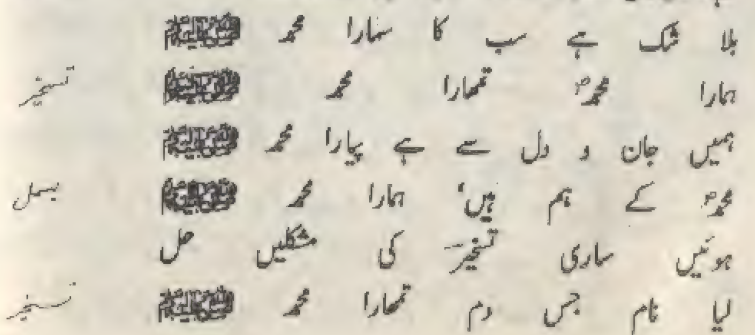 بلا شک ہے سب کا سہارا محمد ﷺ
ہمارا محمدؐ تمھارا محمد ﷺ تسخیر
ہمیں جان و دل سے ہے پیارا محمد ﷺ
محمدؐ کے ہم ہیں، ہمارا محمد ﷺ بسمل
ہوئیں ساری تسخیرؔ کی مشکلیں حل
لیا نام جس دم تمھارا محمد ﷺ تسخیر